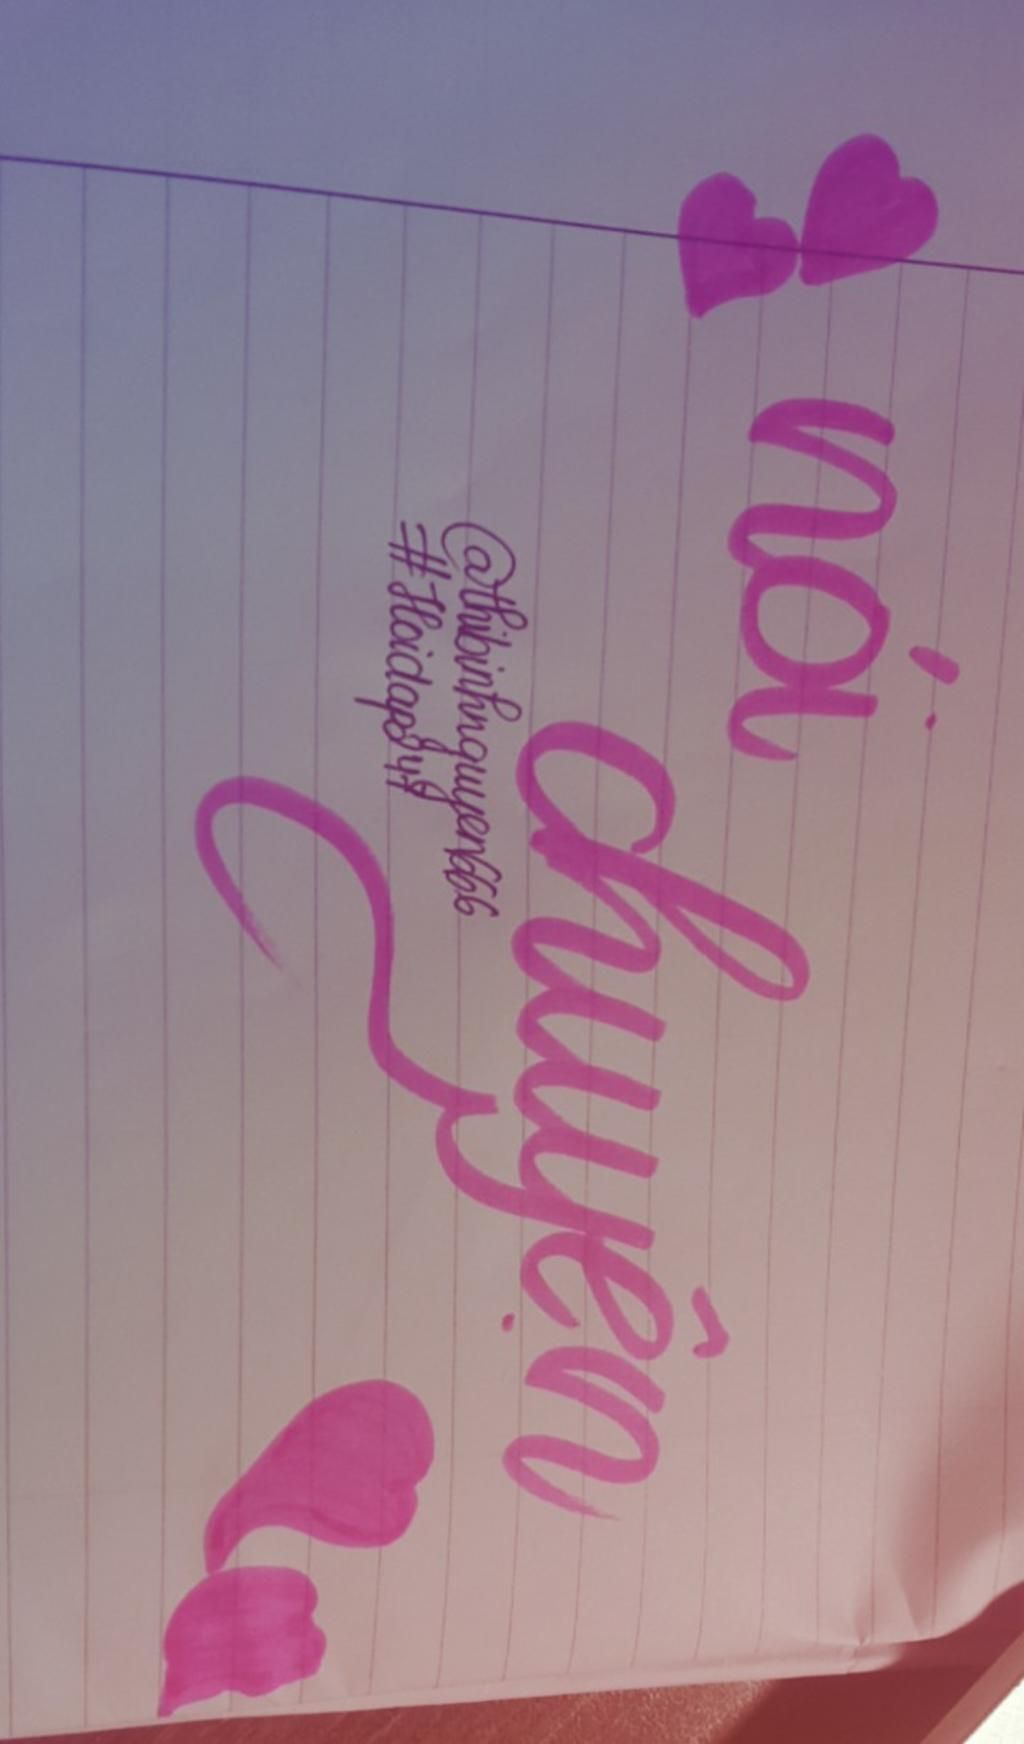 nói
chuyện
@thibinhnguyen666
#Hoidap247